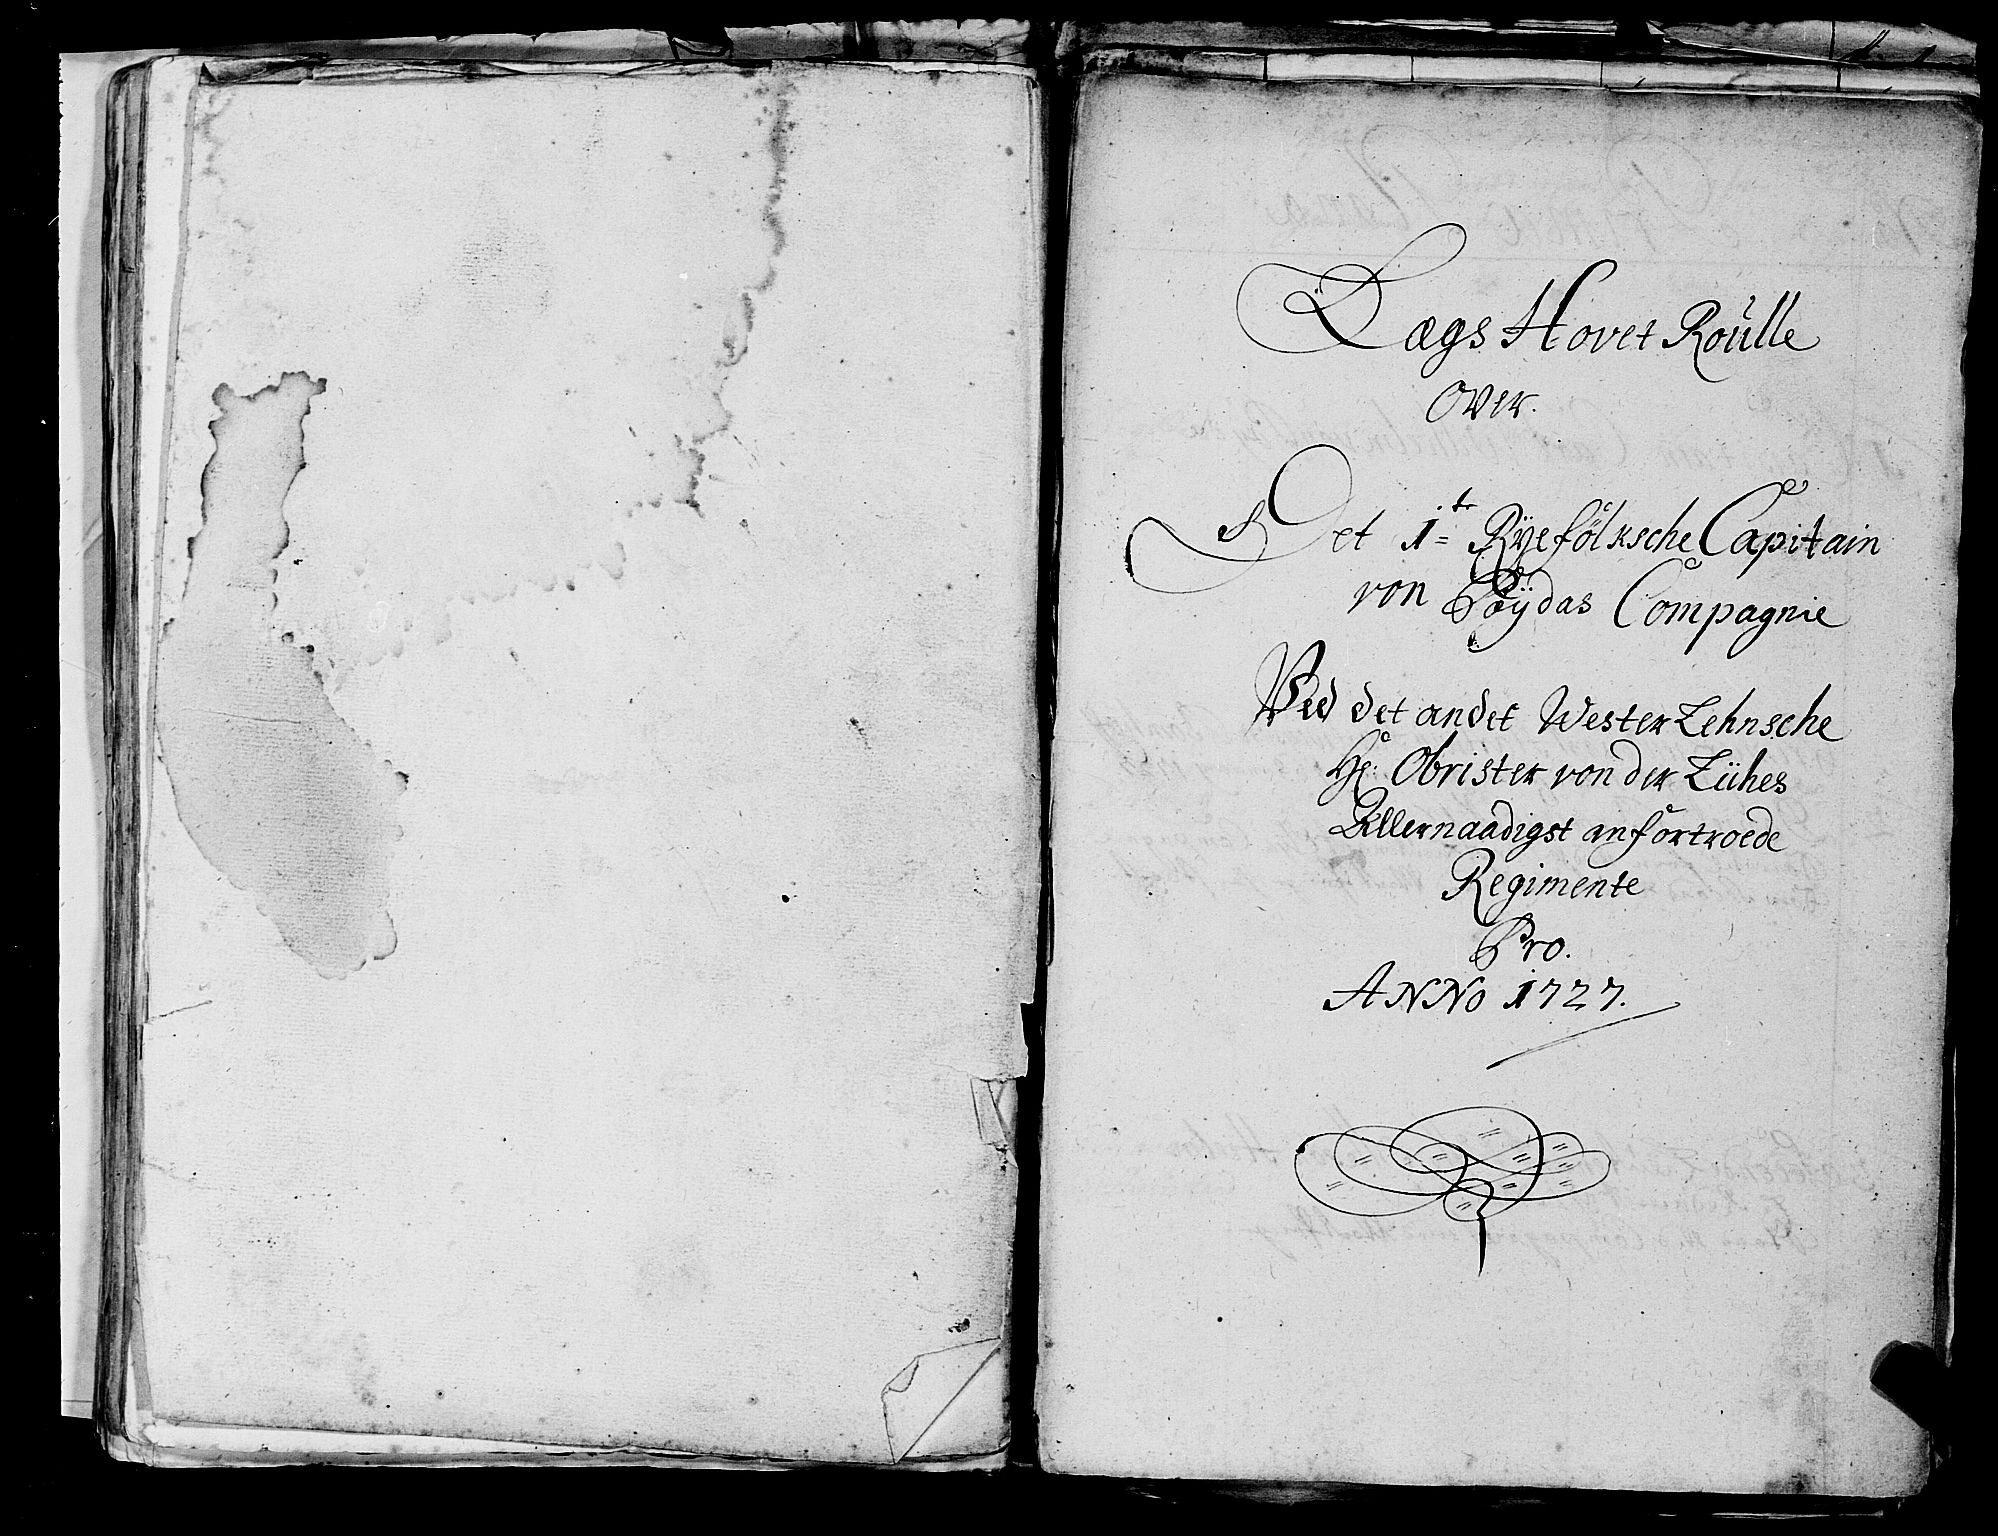 Lægs Hovet Roúlle
over.
Det 1te Ryefölksche Capitain
von Pöÿdas Compagnie
Ved det andet Westerlehnsche
Hr: Obrister von der Lühes
Allernaadigst anfortroede
Regimente
Pro.
ANNo 1727.